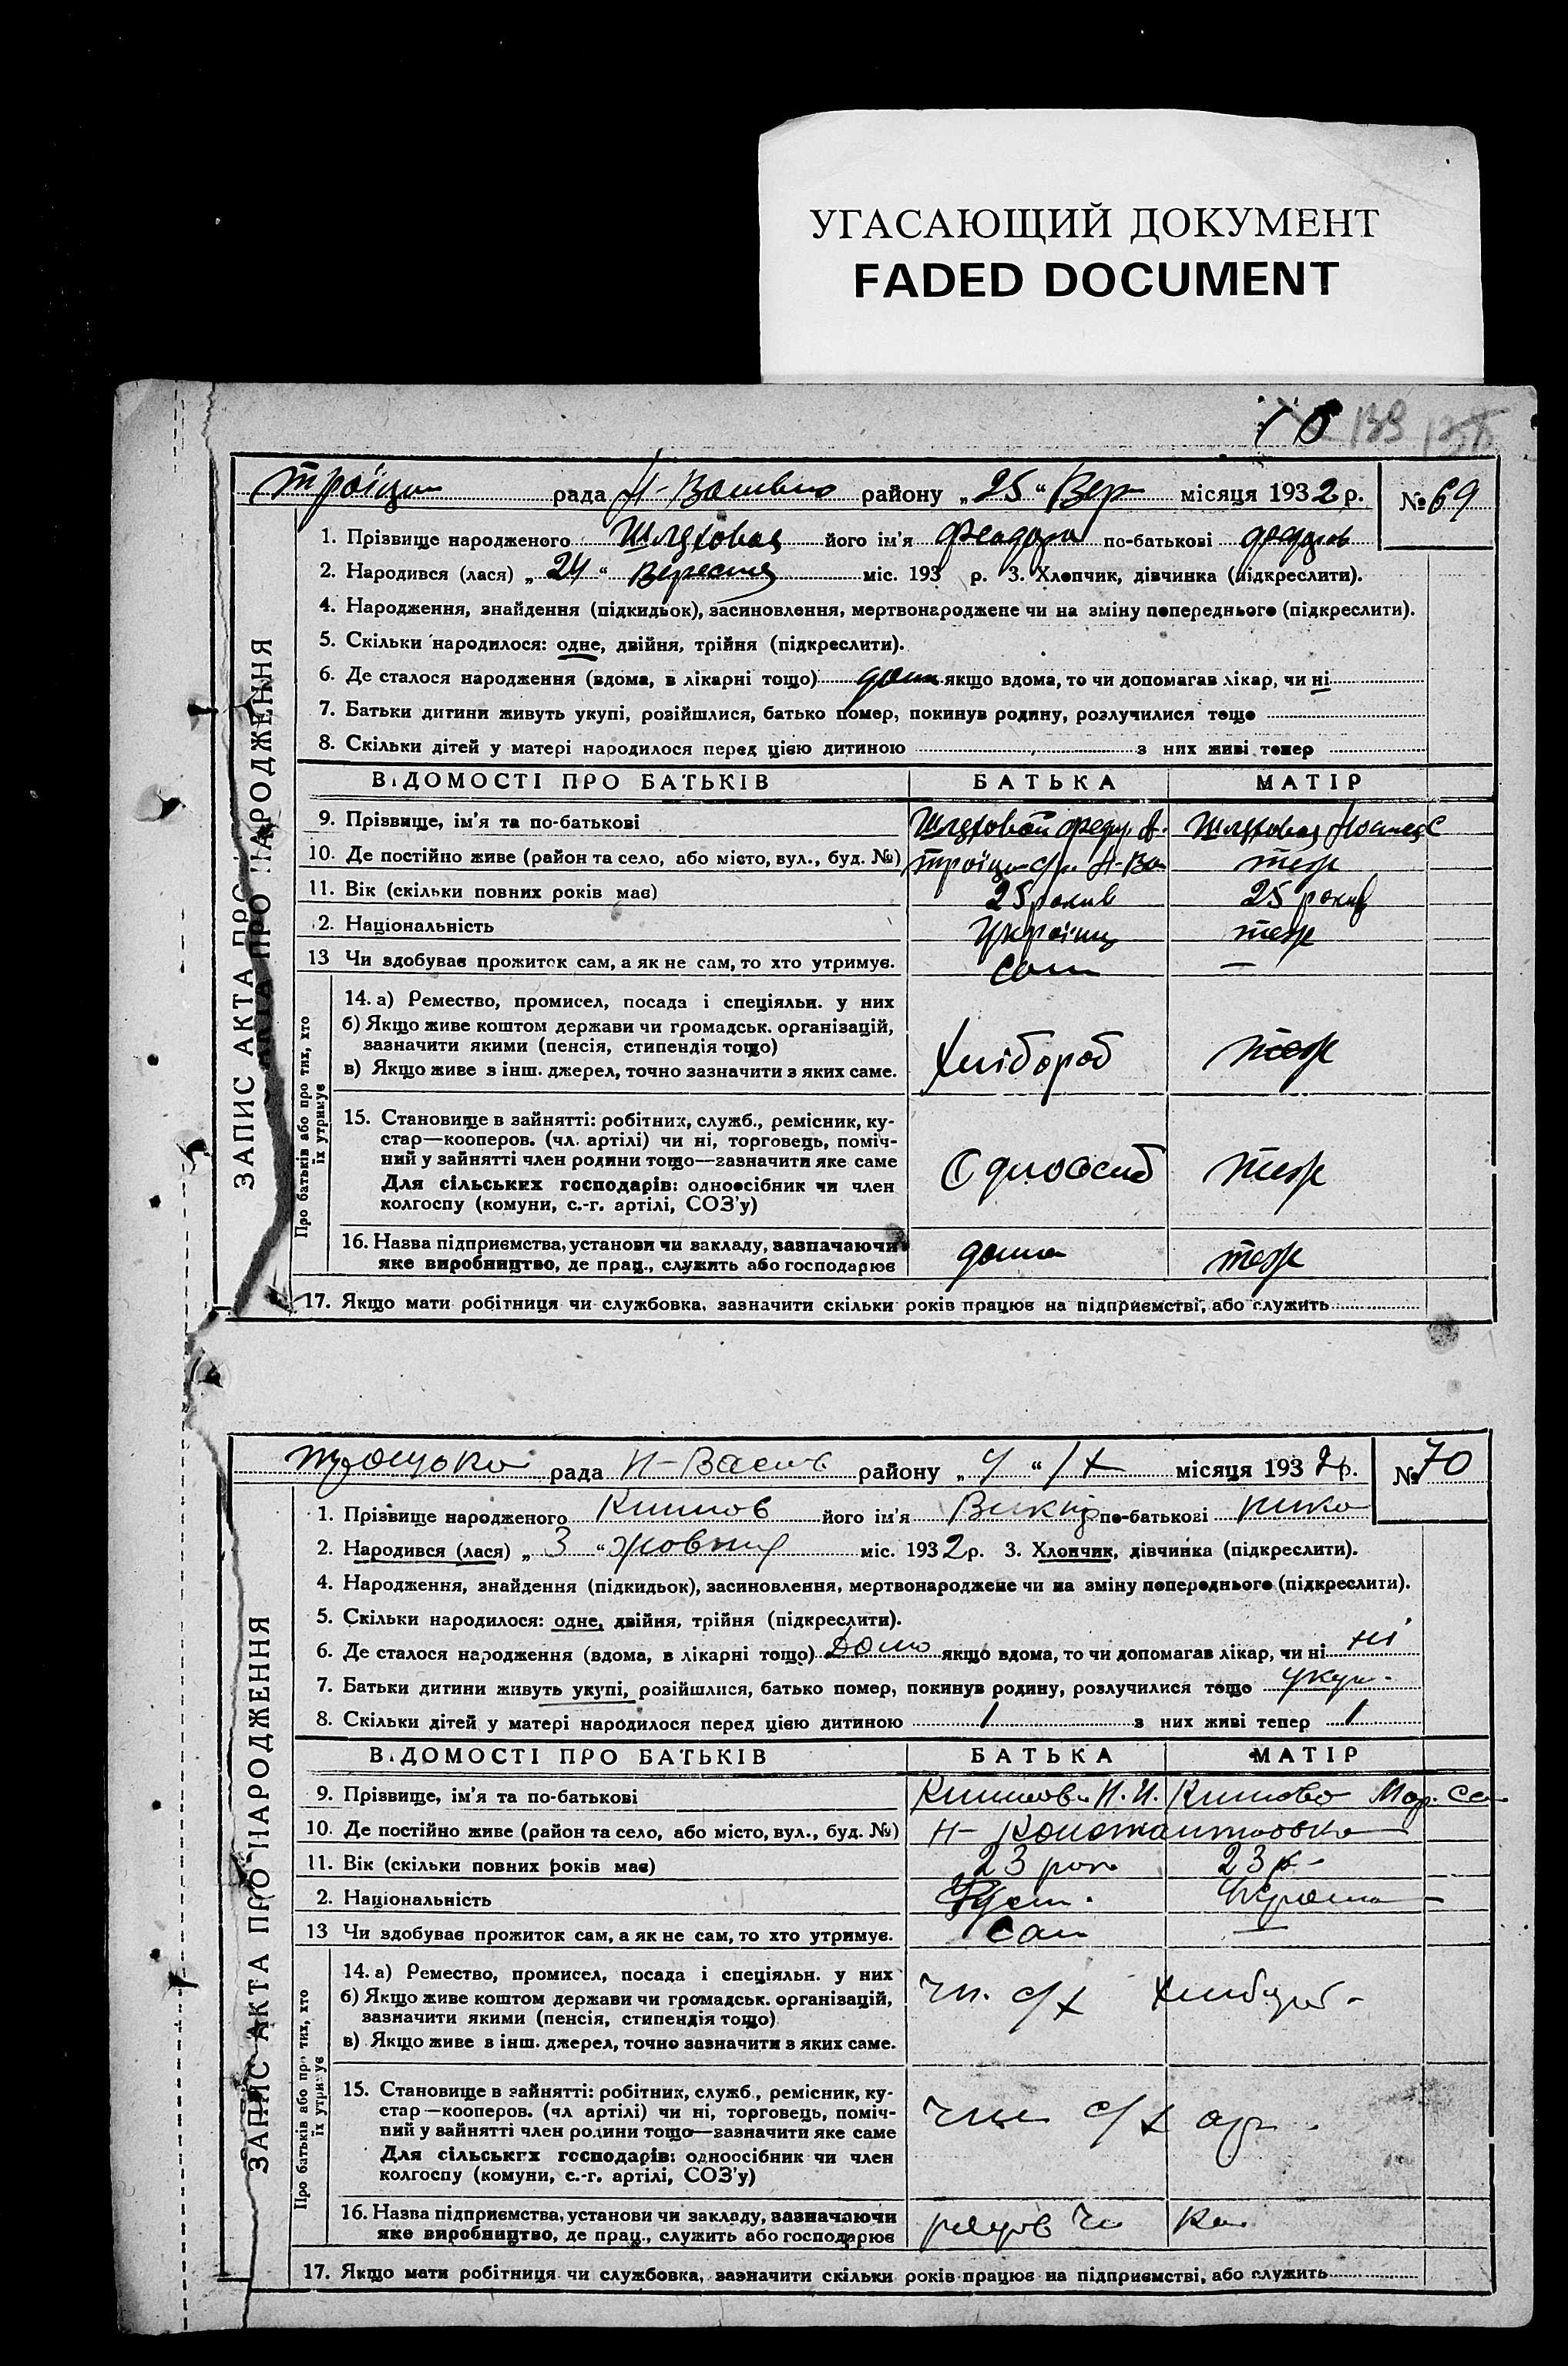 УГАСАЮЩИЙ ДОКУМЕНТ
FADED DOCUMENT
139
рада Н- району „25“ Вер місяця 1932 р. № 69
1. Прізвище народженого Шляховая його ім'я Феадора по-батькові
2. Народився (лася) „24“ Вересня міс. 193 р. 3. Хлопчик, дівчинка (підкреслити).
4. Народження, знайдення (підкидьок), засиновлення, мертвонароджене чи на зміну попереднього (підкреслити).
5. Скільки народилося: одне, двійня, трійня (підкреслити).
6. Де сталося народження (вдома, в лікарні тощо) якщо вдома, то чи допомагав лікар, чи ні
7. Батьки дитини живуть укупі, розійшлися, батько помер, покинув родину, розлучилися тощо
8. Скільки дітей у матері народилося перед цією дитиною з них живі тепер
ВІДОМОСТІ ПРО БАТЬКІВ БАТЬКА МАТІР
9. Прізвище, ім'я та по-батькові Шляховой Шляховая
10. Де постійно живе (район та село, або місто, вул., буд. №) теж
11. Вік (скільки повних років має) 25 рокив 25 рокив
2. Національність теж
13 Чи здобуває прожиток сам, а як не сам, то хто утримує. Сам —
14. а) Ремество, промисел, посада і спеціяльн. у них
б) Якщо живе коштом держави чи громадськ. організацій,
зазначити якими (пенсія, стипендія тощо)
в) Якщо живе з інш. джерел, точно зазначити з яких саме.
Хлібороб теж
15. Становище в зайнятті: робітник, служб., ремісник, ку-
стар—кооперов. (чл. артілі) чи ні, торговець, поміч-
ний у зайнятті член родини тощо—зазначити яке саме
Для сільських господарів: одноосібник чи член
колгоспу (комуни, с.-г. артілі, СОЗ'у)
Одноосиб теж
16. Назва підприємства, установи чи закладу, зазначаючи
яке виробництво, де прац., служить або господарює
дома теж
17. Якщо мати робітниця чи службовка, зазначити скільки років працює на підприємстві, або служить
ЗАПИС АКТА ПРО НАРОДЖЕННЯ
Про батьків або про тих, хто
їх утримує
рада Н- району „4“ IX місяця 1932 р. № 70
1. Прізвище народженого Климов його ім'я по-батькові
2. Народився (лася) „3“ жовтня міс. 1932 р. 3. Хлопчик, дівчинка (підкреслити).
4. Народження, знайдення (підкидьок), засиновлення, мертвонароджене чи на зміну попереднього (підкреслити).
5. Скільки народилося: одне, двійня, трійня (підкреслити).
6. Де сталося народження (вдома, в лікарні тощо) Дома якщо вдома, то чи допомагав лікар, чи ні ні
7. Батьки дитини живуть укупі, розійшлися, батько помер, покинув родину, розлучилися тощо укупі
8. Скільки дітей у матері народилося перед цією дитиною 1 з них живі тепер 1
ВІДОМОСТІ ПРО БАТЬКІВ БАТЬКА МАТІР
9. Прізвище, ім'я та по-батькові Климов Н. И. Климова Мар.
10. Де постійно живе (район та село, або місто, вул., буд. №) Н-
11. Вік (скільки повних років має) 23 рок 23 р-
2. Національність
13 Чи здобуває прожиток сам, а як не сам, то хто утримує. Сам —
14. а) Ремество, промисел, посада і спеціяльн. у них
б) Якщо живе коштом держави чи громадськ. організацій,
зазначити якими (пенсія, стипендія тощо)
в) Якщо живе з інш. джерел, точно зазначити з яких саме.
чл. с/х
15. Становище в зайнятті: робітник, служб., ремісник, ку-
стар—кооперов. (чл артілі) чи ні, торговець, поміч-
ний у зайнятті член родини тощо—зазначити яке саме
Для сільських господарів: одноосібник чи член
колгоспу (комуни, с.-г. артілі, СОЗ'у)
член с/х арт.
16. Назва підприємства, установи чи закладу, зазначаючи
яке виробництво, де прац., служить або господарює
17. Якщо мати робітниця чи службовка, зазначити скільки років працює на підприємстві, або служить
ЗАПИС АКТА ПРО НАРОДЖЕННЯ
Про батьків або про тих, хто
їх утримує